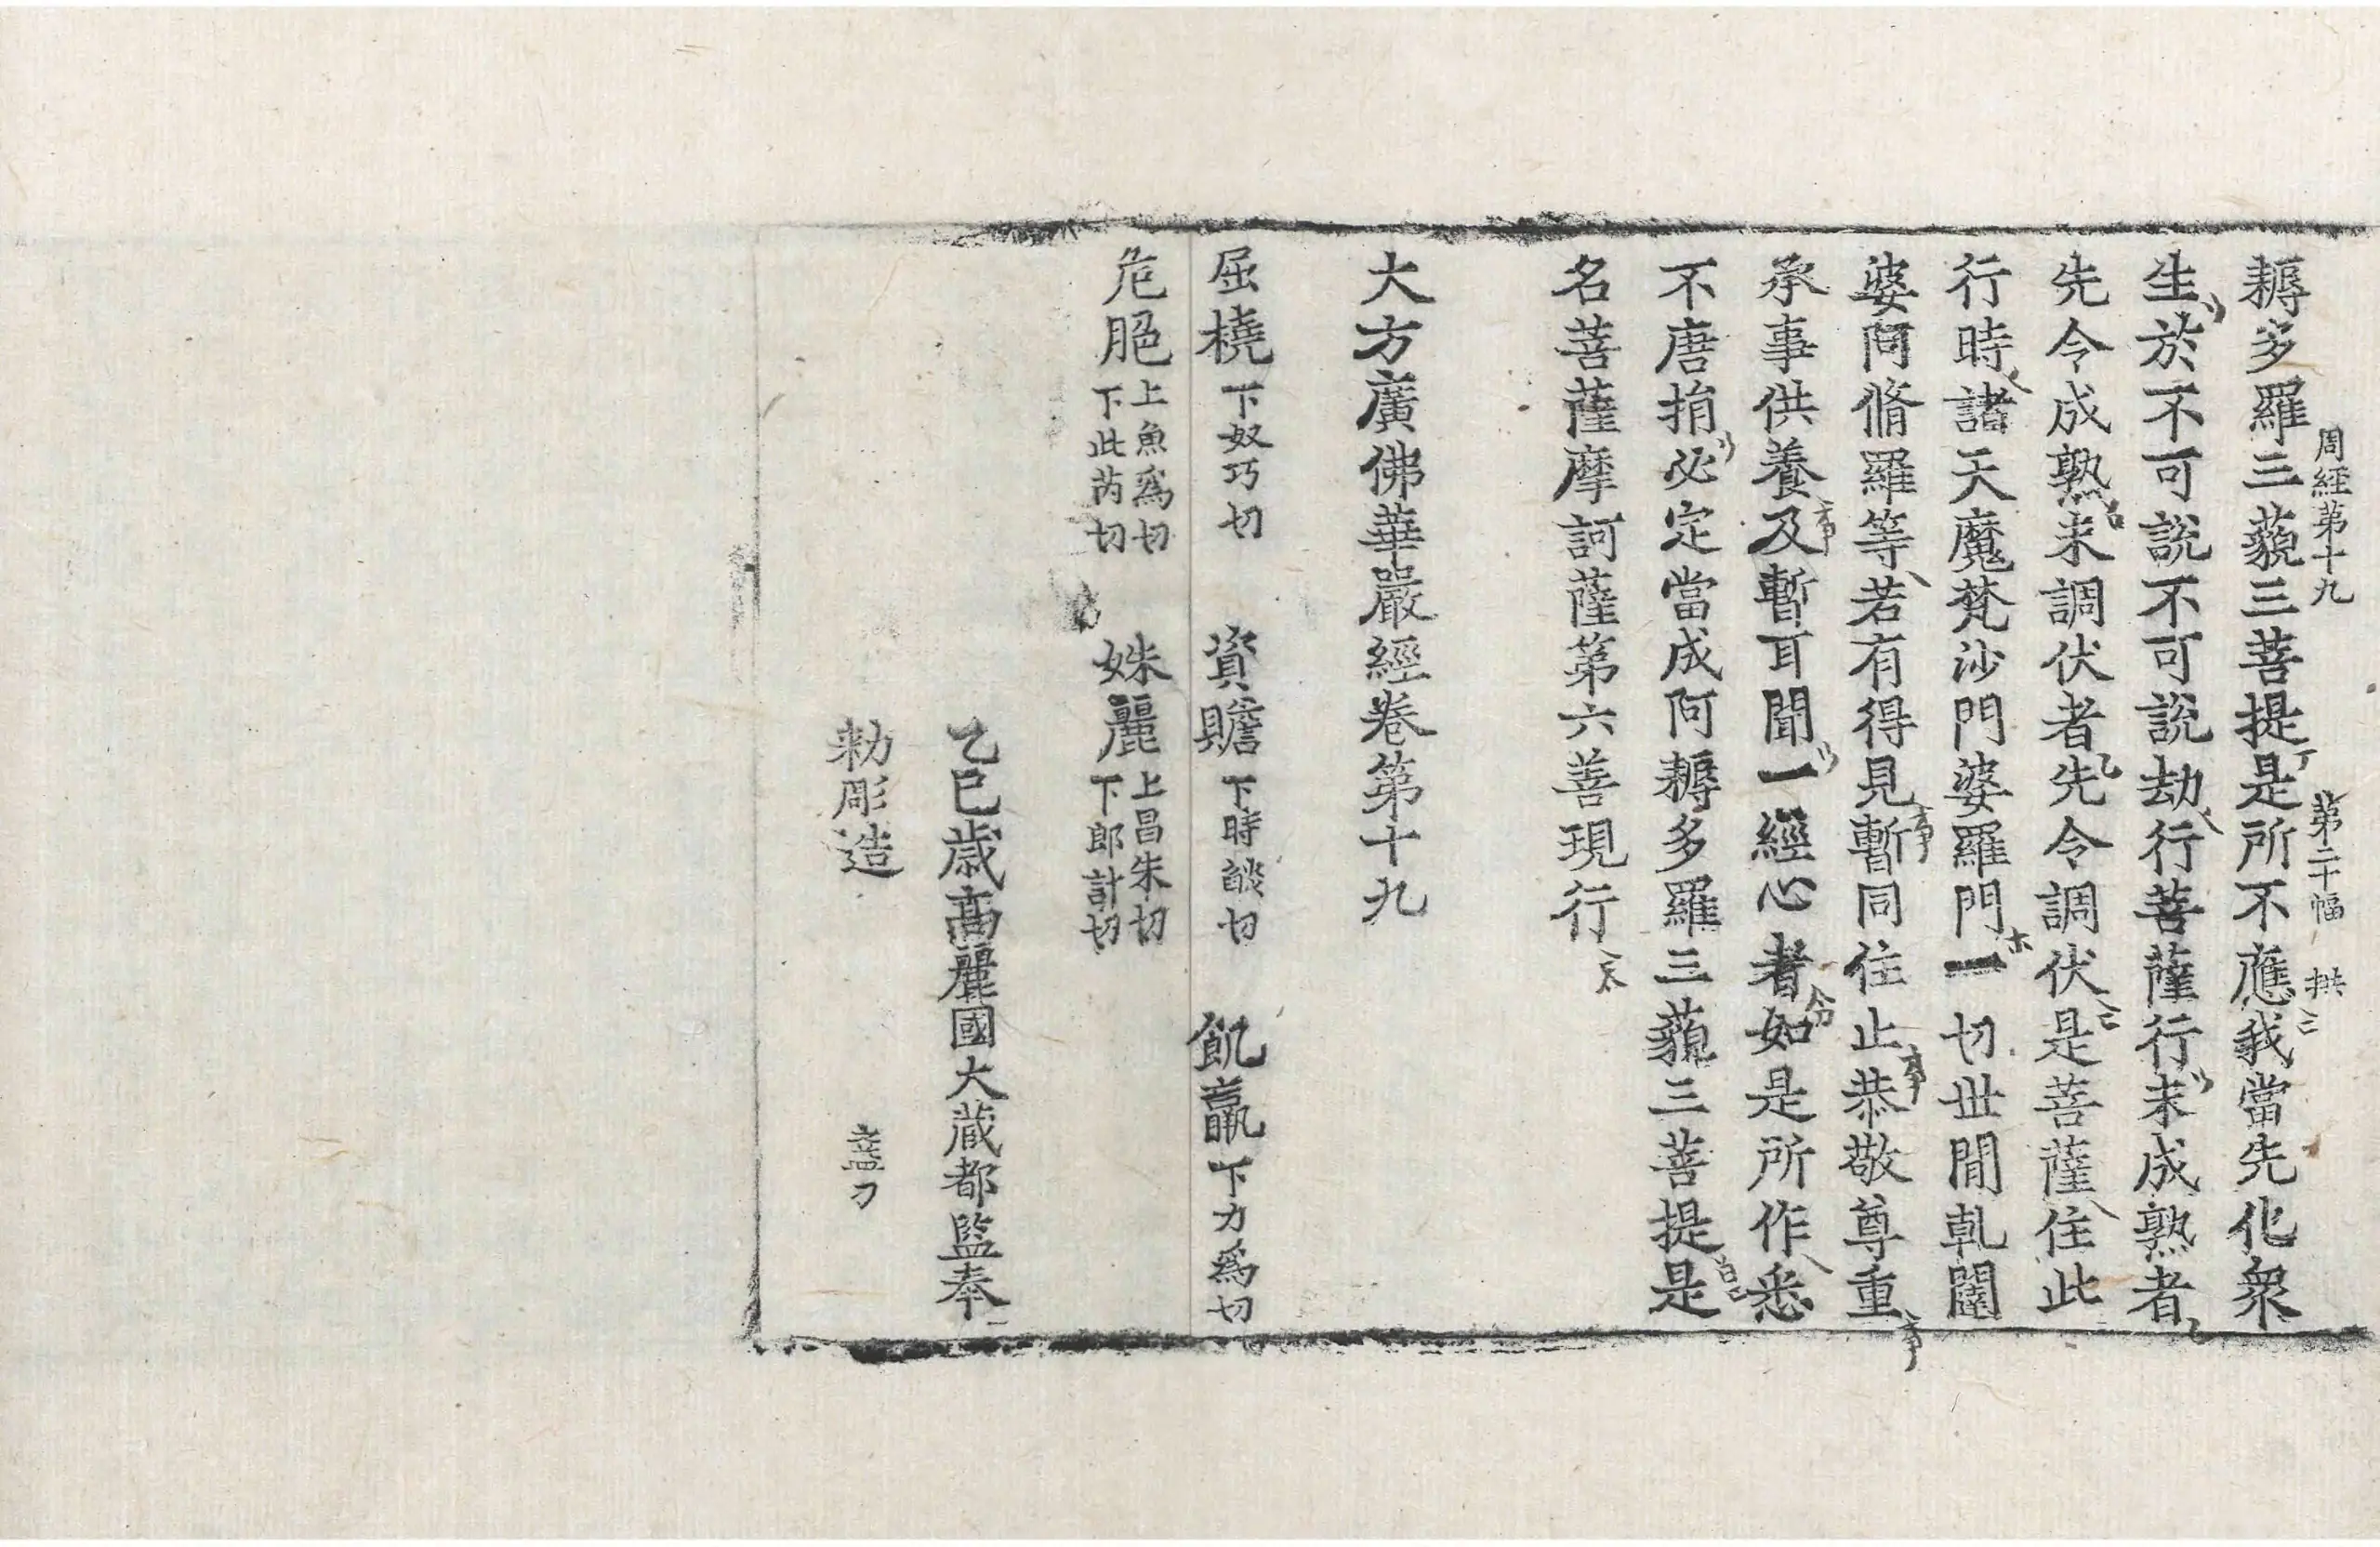 周經第十九　第二十幅　拱
耨多羅三藐三菩提是所不應我當先化衆
生於不可說不可說劫行菩薩行未成熟者
先令成熟未調伏者先令調伏是菩薩住此
行時諸天魔梵沙門婆羅門一切世間乹闥
婆阿脩羅等若有得見暫同住止恭敬尊重
承事供養及暫耳聞一經心者如是所作悉
不唐捐必定當成阿耨多羅三藐三菩提是
名菩薩摩訶薩第六善現行
大方廣佛華嚴經卷第十九
屈橈下奴巧切　資贍下時讌切　飢羸下力爲切
危脆上魚爲切下此芮切　姝麗上昌朱切下郎計切
乙巳歲高麗國大藏都監奉
勑彫造　刀